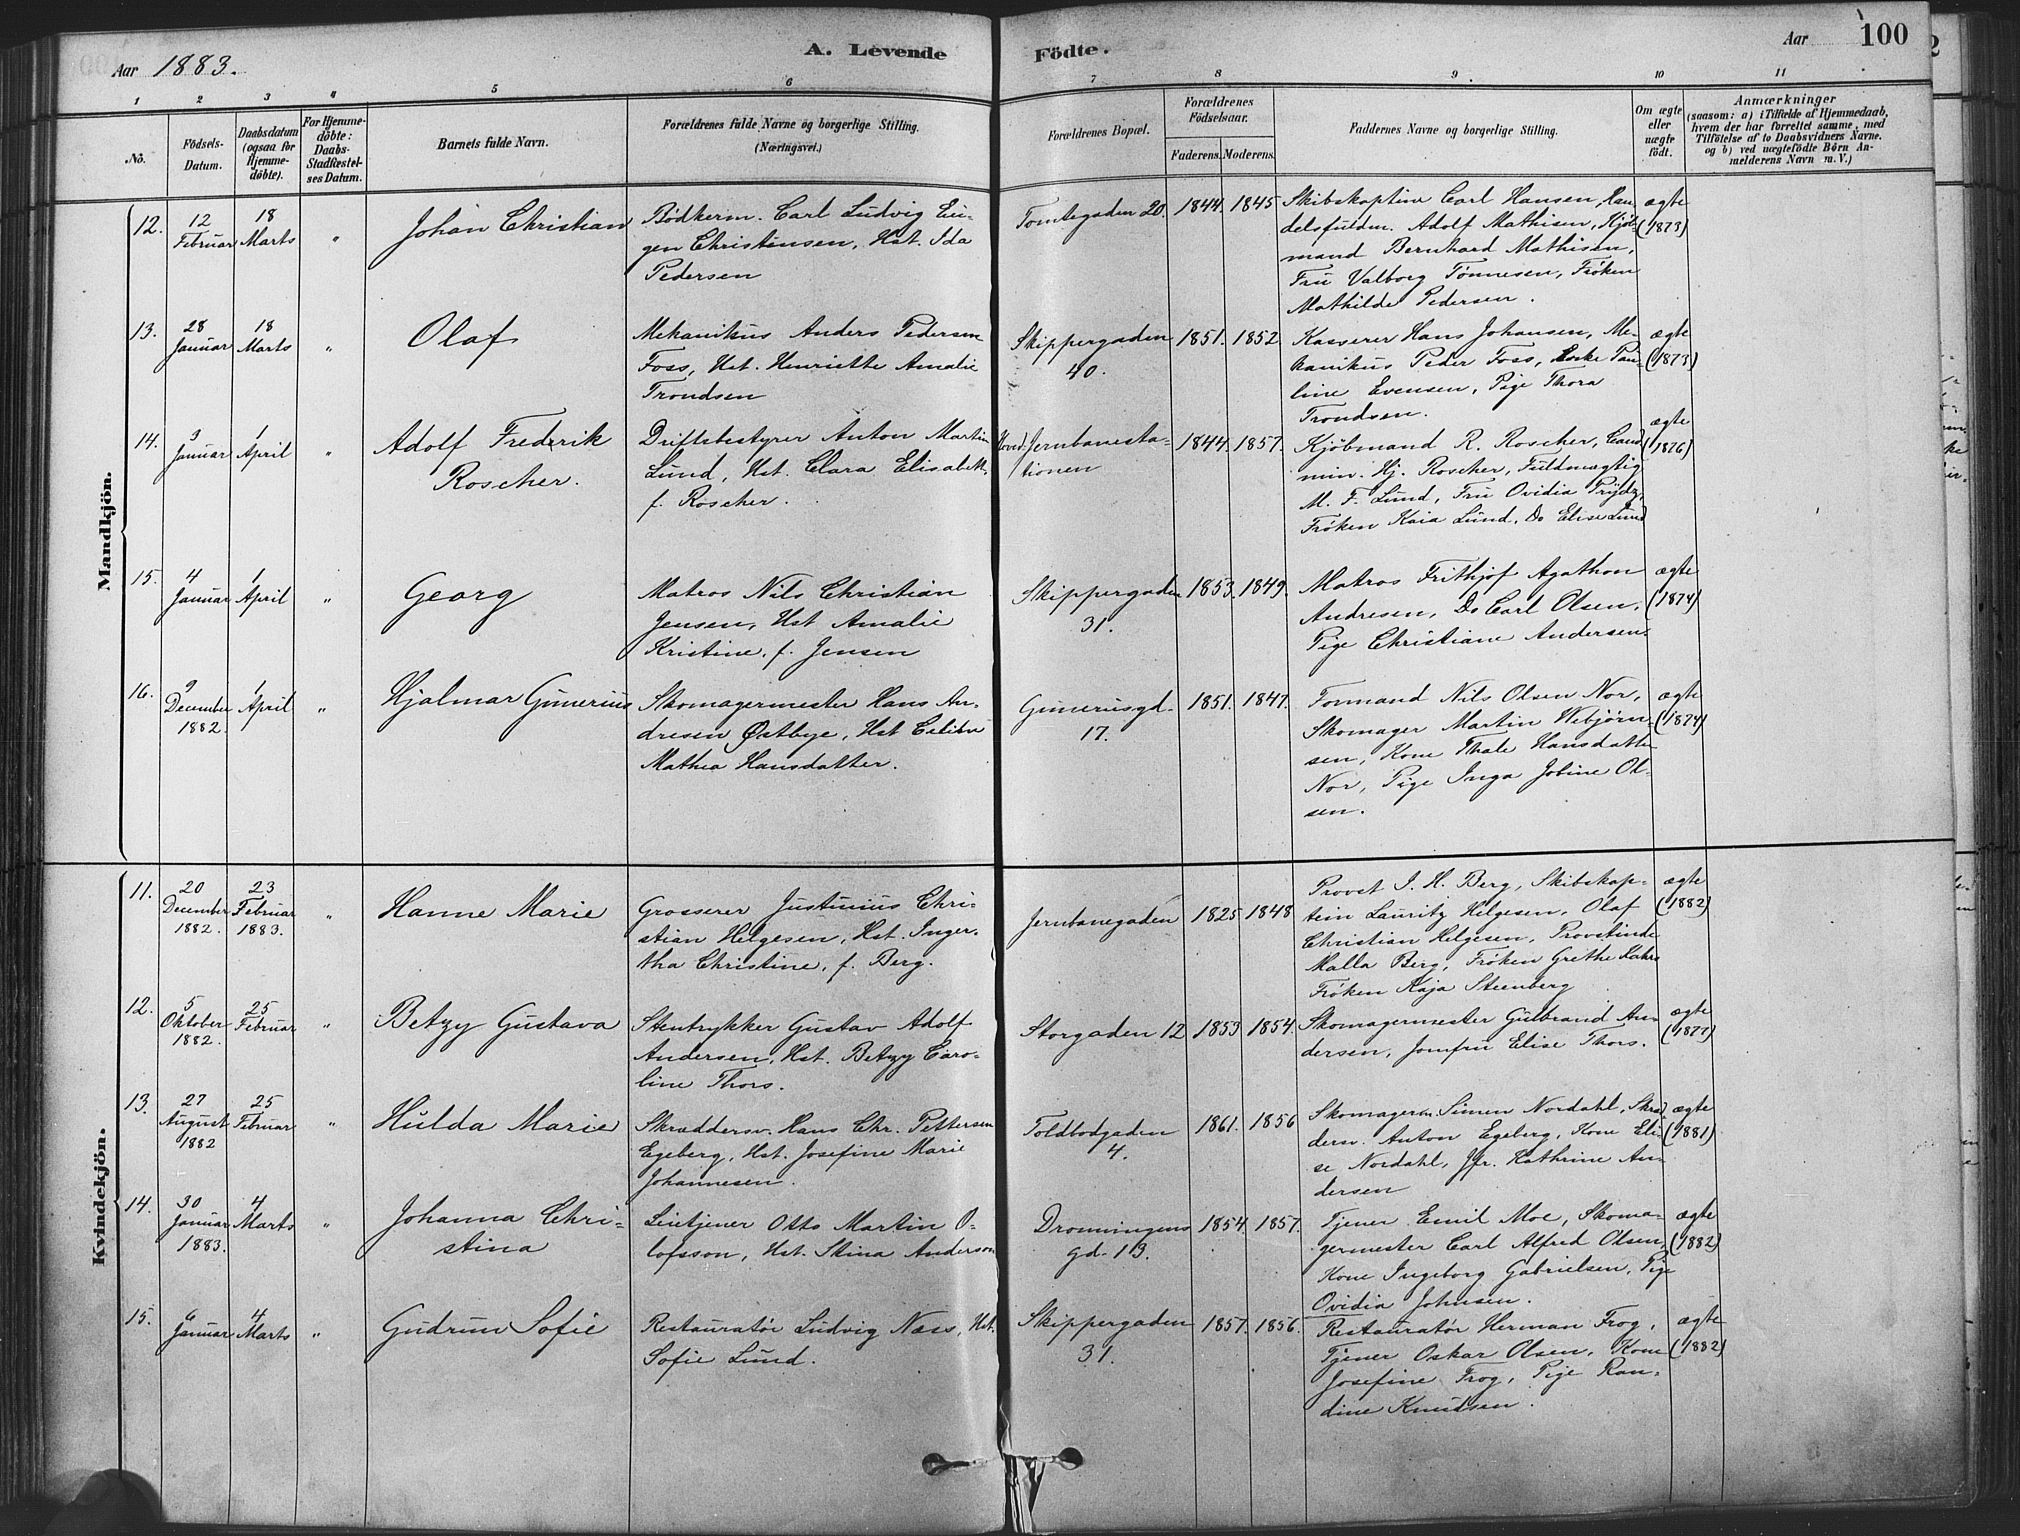 Aar 1883.
A. Levende Födte.
Aar 100
1 2 3 4 5 6 7 8 9 10 11
No.
Födsels-Datum.
Daabsdatum (ogsaa for Hjemmedöbte).
For Hjemmedöbte: Daabs-Stadfæstelses Datum.
Barnets fulde Navn.
Forældrenes fulde Navne og borgerlige Stilling.
(Næringsvei.)
Forældrenes Bopæl.
Forældrenes Födselsaar.
Faderens. Moderens.
Faddernes Navne og borgerlige Stilling.
Om ægte eller uægte födt.
Anmærkninger
(saasom: a) i Tilfælde af Hjemmedaab,
hvem der har forrettet samme, med
Tilföielse af to Daabsvidners Navne.
og b) ved uægtefödte Börn Anmelderens Navn m.V.)
Mandkjön.
12. 12 Februar 18 Marts " Johan Christian
Bödkerm. Carl Ludvig Eu-
gen Christensen, Hst. Ida
Pedersen
Tomtegaden 20. 1844. 1845
Skibskaptein Carl Hansen, Han-
delsfuldm. Adolf Mathisen, Kjöb-
mand Bernhard Mathisen,
Fru Valborg Tønnesen, Frøken
Mathilde Pedersen.
ægte (1873)
13. 28 Januar 18 Marts " Olaf
Mekanikus Anders Pedersen
Foss, Hst. Henriette Amalie
Trondsen
Skippergaden 40. 1851. 1852
Kasserer Hans Johansen, Me-
kanikus Peder Foss, Enke Pau-
line Evensen, Pige Thora
Trondsen.
ægte (1873)
14. 3 Januar 1 April " Adolf Frederik
Roscher.
Driftsbestyrer Anton Martin
Lund, Hst. Clara Elisabeth
f. Roscher.
Hoved-Jernbanesta-
tionen 1844. 1857.
Kjöbmand R. Roscher, Cand.
min. Hj. Roscher, Fuldmægtig
M. F. Lund, Fru Ovidia Prydz,
Frøken Kaia Lund, Do Elise Lund
ægte (1876)
15. 4 Januar 1 April " Georg
Matros Nils Christian
Jensen, Hst Amalie
Kristine, f. Jensen
Skippergaden 31. 1853. 1849.
Matros Frithjof Agathon
Andresen, Do Carl Olsen,
Pige Christiane Andersen.
ægte (1874)
16. 9 December 1882. 1 April " Hjalmar Gunerius
Skomagermester Hans An-
dresen Østbye, Hst
Mathea Hansdatter.
Gunerusgd. 17. 1851. 1847.
Formand Nils Olsen Nor,
Skomager Martin Webjørn-
sen, Kone Thale Hansdatter
Nor, Pige Inga Jobine Ol-
sen.
ægte (1874)
Kvindekjön.
11. 20 December 1882. 23 Februar 1883. " Hanne Marie
Grosserer Justinius Chri-
stian Helgesen, Hst. Inger-
tha Christine, f. Berg.
Jernbanegaden 1825 1848
Provst J. H. Berg, Skibskap-
tein Lauritz Helgesen, Olaf
Christian Helgesen, Provstinde
Malla Berg, Frøken Grethe
Frøken Kaja Steenberg
ægte (1882)
12. 5 Oktober 1882. 25 Februar " Betzy Gustava
Stentrykker Gustav Adolf
Andersen, Hst. Betzy Caro-
line Thors.
Storgaden 12 1853 1854.
Skomagermester Gulbrand An-
dersen, Jomfru Elise Thors.
ægte (1877)
13. 27 August 1882 25 Februar " Hulda Marie
Skræddersv. Hans Chr. Pettersen
Egeberg, Hst. Josefine Marie
Johannesen.
Toldbodgaden 4. 1861. 1856
Skomagerm. Simen Nordahl, Skræd-
derm. Anton Egeberg, Kone Eli-
se Nordahl, Jfr. Kathrine An-
dersen
ægte (1881)
14. 30 Januar 1883. 4 Marts " Johanna Chri-
stina
Leietjener Otto Martin O-
lofsson, Hst. Stina Anderson
Dronningens
gd. 13. 1854. 1857.
Tjener Emil Moe, Skoma-
germester Carl Alfred Olsen,
Kone Ingeborg Gabrielsen, Pige
Ovidia Johnsen.
ægte (1882)
15. 6 Januar 4 Marts " Gudrun Sofie
Restauratør Ludvig Næss, Hst.
Sofie Lund.
Skippergaden 31. 1857. 1856.
Restauratør Herman Frog,
Tjener Oskar Olsen, Kone
Josefine Frog, Pige Ran-
dine Knudsen.
ægte (1882)